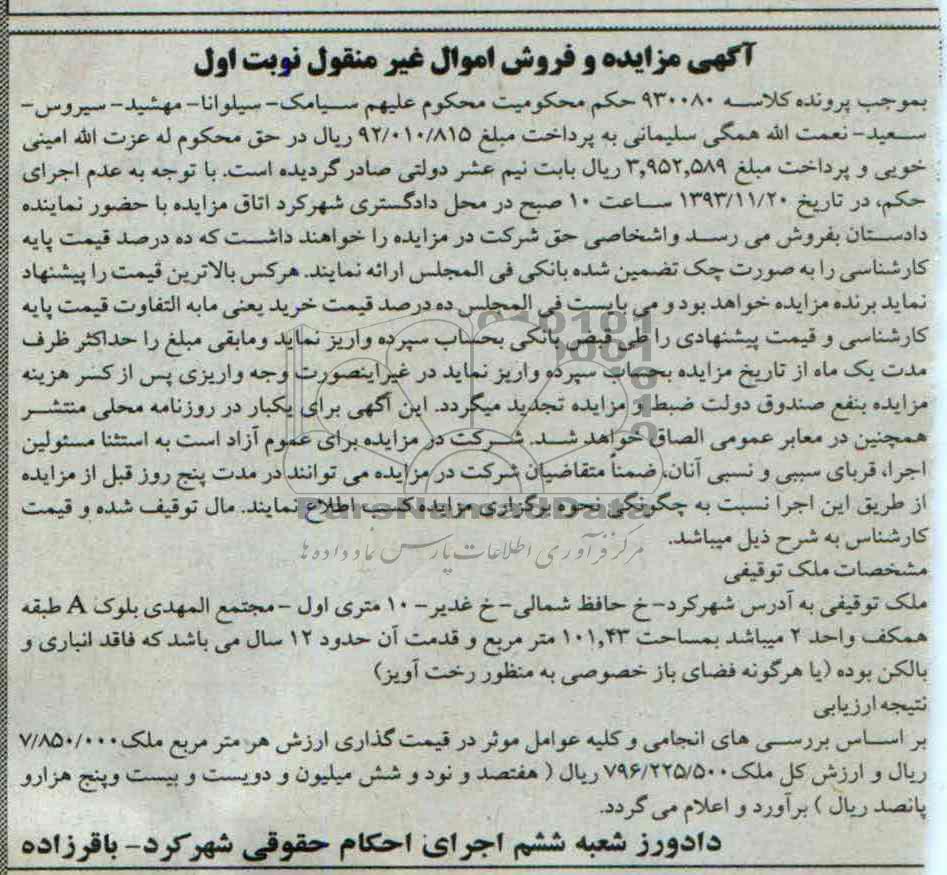 آگهی مزایده و فروش اموال غیر منقول نوبت اول
بموجب پرونده کلاسه ۹۳۰۰۸۰ حکم محکومیت محکوم علیهم سیامک- سیلوانا- مهشید- سیروس-
سعید- نعمت الله همگی سلیمانی به پرداخت مبلغ ۹۲/۰۱۰/۸۱۵ ریال در حق محکوم له عزت الله امینی
خویی و پرداخت مبلغ ۳,۹۵۲,۵۸۹ ریال بابت نیم عشر دولتی صادر گردیده است. با توجه به عدم اجرای
حکم، در تاریخ ۱۳۹۳/۱۱/۲۰ ساعت ۱۰ صبح در محل دادگستری شهرکرد اتاق مزایده با حضور نماینده
دادستان بفروش می رسد واشخاصی حق شرکت در مزایده را خواهند داشت که ده درصد قیمت پایه
کارشناسی را به صورت چک تضمین شده بانکی فی المجلس ارائه نمایند. هرکس بالاترین قیمت را پیشنهاد
نماید برنده مزایده خواهد بود و می بایست فی المجلس ده درصد قیمت خرید یعنی مابه التفاوت قیمت پایه
کارشناسی و قیمت پیشنهادی را طی قبض بانکی بحساب سپرده واریز نماید ومابقی مبلغ را حداکثر ظرف
مدت یک ماه از تاریخ مزایده بحساب سپرده واریز نماید در غیراینصورت وجه واریزی پس از کسر هزینه
مزایده بنفع صندوق دولت ضبط و مزایده تجدید میگردد. این آگهی برای یکبار در روزنامه محلی منتشر
همچنین در معابر عمومی الصاق خواهد شد. شرکت در مزایده برای عموم آزاد است به استثنا مسئولین
اجرا، قربای سببی و نسبی آنان، ضمناً متقاضیان شرکت در مزایده می توانند در مدت پنج روز قبل از مزایده
از طریق این اجرا نسبت به چگونگی نحوه برگزاری مزایده کسب اطلاع نمایند. مال توقیف شده و قیمت
ParsNamadData
کارشناس به شرح ذیل میباشد.
مرکز فرآوری اطلاعات پارس نماد داده ها
مشخصات ملک توقیفی
ملک توقیفی به آدرس شهرکرد- خ حافظ شمالی- خ غدیر- ۱۰ متری اول -مجتمع المهدی بلوک A طبقه
همکف واحد ۲ میباشد بمساحت ۱۰۱,۴۳ متر مربع و قدمت آن حدود ۱۲ سال می باشد که فاقد انباری و
بالکن بوده (یا هرگونه فضای باز خصوصی به منظور رخت آویز)
نتیجه ارزیابی
بر اساس بررسی های انجامی و کلیه عوامل موثر در قیمت گذاری ارزش هر متر مربع ملک ۷/۸۵۰/۰۰۰
ریال و ارزش کل ملک ۷۹۶/۲۲۵/۵۰۰ ریال ( هفتصد و نود و شش میلیون و دویست و بیست وپنج هزارو
پانصد ریال ) برآورد و اعلام می گردد.
دادورز شعبه ششم اجرای احکام حقوقی شهرکرد- باقرزاده